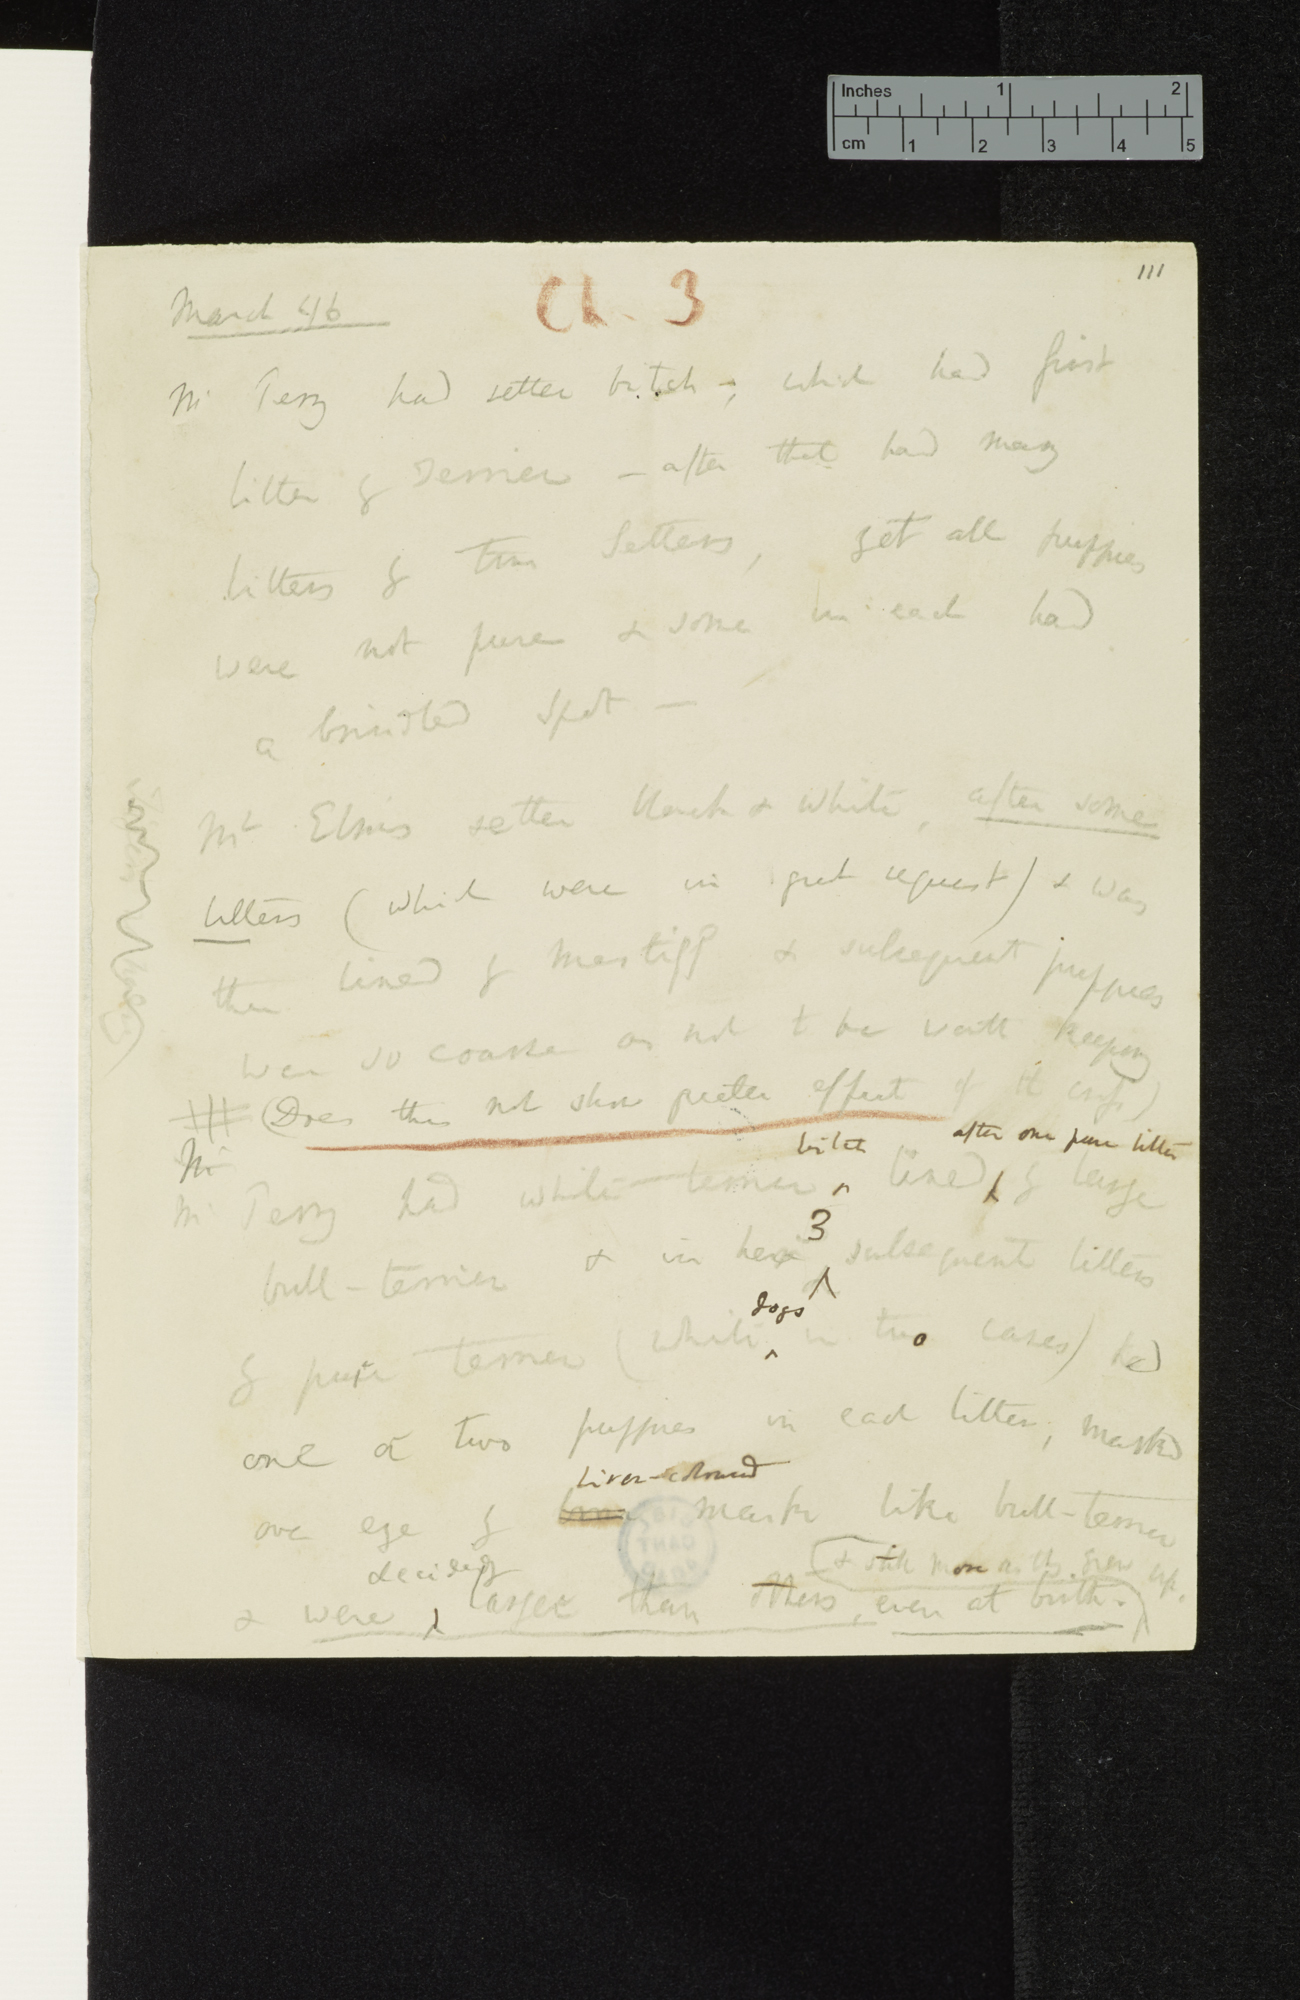 Inches 1 2
cm 1 2 3 4 5
111
Ch. 3
March 46
Mr Terry had setter bitch —, which had first
litter by Terrier — after that had many
litters by true Setters, yet all puppies
were not pure & some in each had
a brindled spot —
Mr setter black & white, after some
litters (which were in great request) & was
then lined by Mastiff & subsequent puppies
were so coarse as not to be worth keeping
(Does this not show greater effect of the
Mr
bitch after one pure litter
Mr Terry had white terrier lined by large
3
bull-terrier & in her subsequent litters
dogs
by pure terrier (white in two cases) had
one or two puppies in each litter, marked
liver-coloured
over eye by mark like bull-terrier
& still more as they grew up.
decidedly
& were larger than others, even at birth.